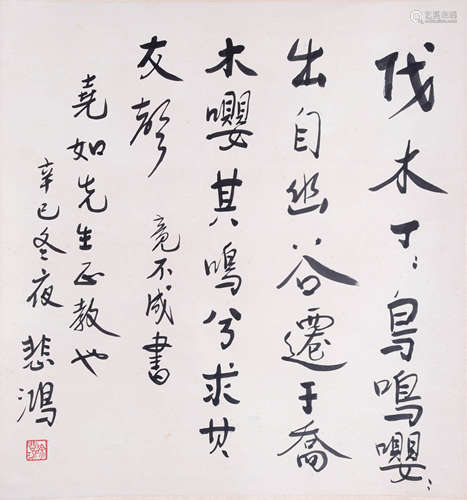 伐木丁:鳥鳴嚶:
出自幽谷遷于喬
木嚶其鳴兮求其
友聲 竟不成書
堯如先生正教也
辛巳冬夜 悲鴻